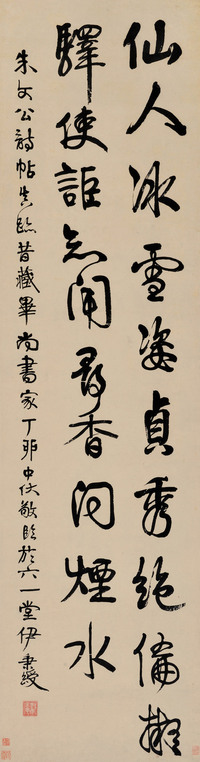 仙人冰雪姿貞秀絕倫擬
驛使詎知聞尋香問煙水
朱文公詩帖真跡昔藏畢尚書家丁卯中伏敬臨於六一堂伊秉綬